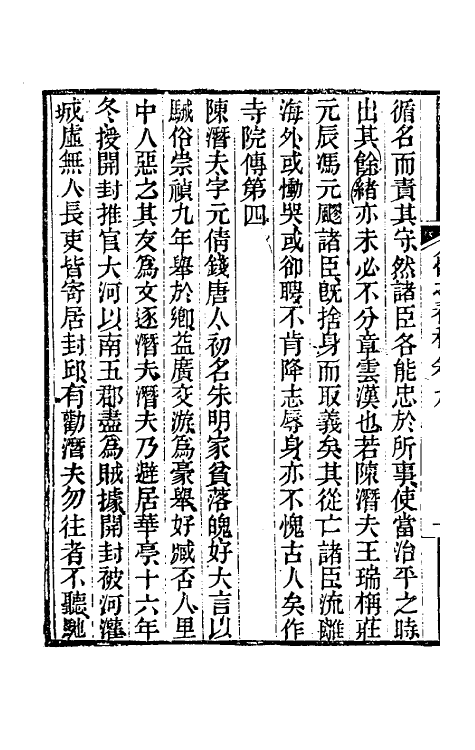 循名而責其守然諸臣各能忠於所事使當治平之時
出其餘緒亦未必不分章雲漢也若陳潛夫王瑞栴莊
元辰馮元颺諸臣旣捨身而取義矣其從亡諸臣流離
海外或慟哭或卻聘不肯降志辱身亦不愧古人矣作
寺院傳第四
陳潛夫字元倩錢唐人初名朱明家貧落魄好大言以
駴俗崇禎九年舉於鄉益廣交游爲豪舉好臧否人里
中人惡之其友爲文逐潛夫潛夫乃避居華亭十六年
冬授開封推官大河以南五郡盡爲賊據開封被河灌
城虛無人長吏皆寄居封邱有勸潛夫勿往者不聽馳